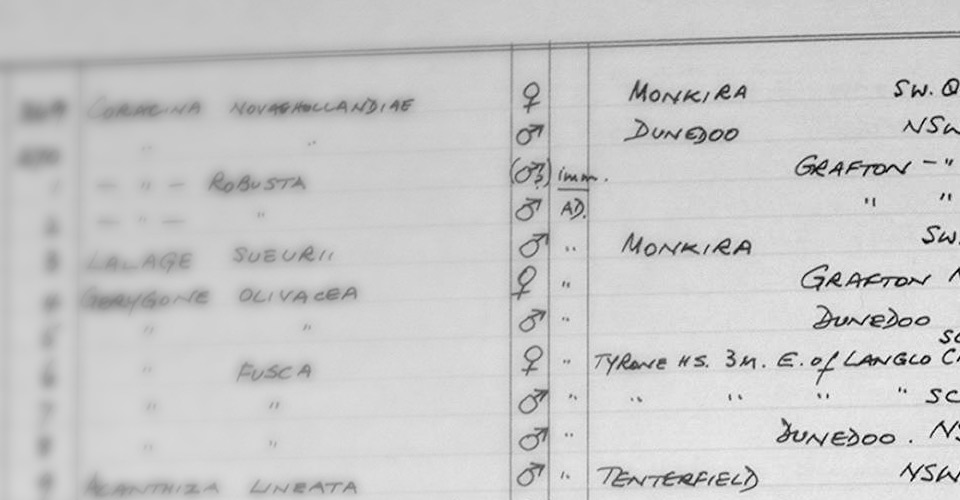 CORACINA NOVAEHOLLANDIAE ♀ MONKIRA SW. Q
" " ♂ DUNEDOO NSW
— " — ROBUSTA (♂?) imm. GRAFTON — "
— " — " ♂ AD. " "
LALAGE SUEURII ♂ " MONKIRA SW.
GERYGONE OLIVACEA ♀ " GRAFTON N
" " ♂ " DUNEDOO
" FUSCA ♀ " TYRONE HS. 3M. E. of LANGLO C
" " ♂ " " " " " SC
" " ♂ " DUNEDOO. NS
ACANTHIZA LINEATA ♂ " TENTERFIELD NSW